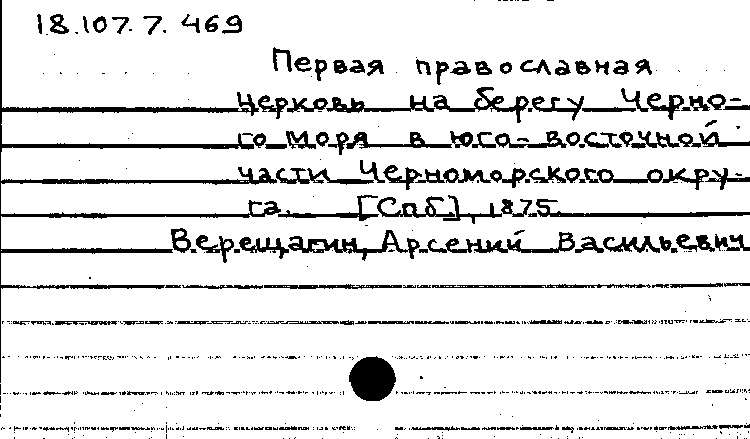 18.107.7.469
Первая православная
церковь на берегу Черно-
го моря в юго-восточной
части Черноморского окру-
га. [Спб], 1875.
Верещагин, Арсений Васильевич